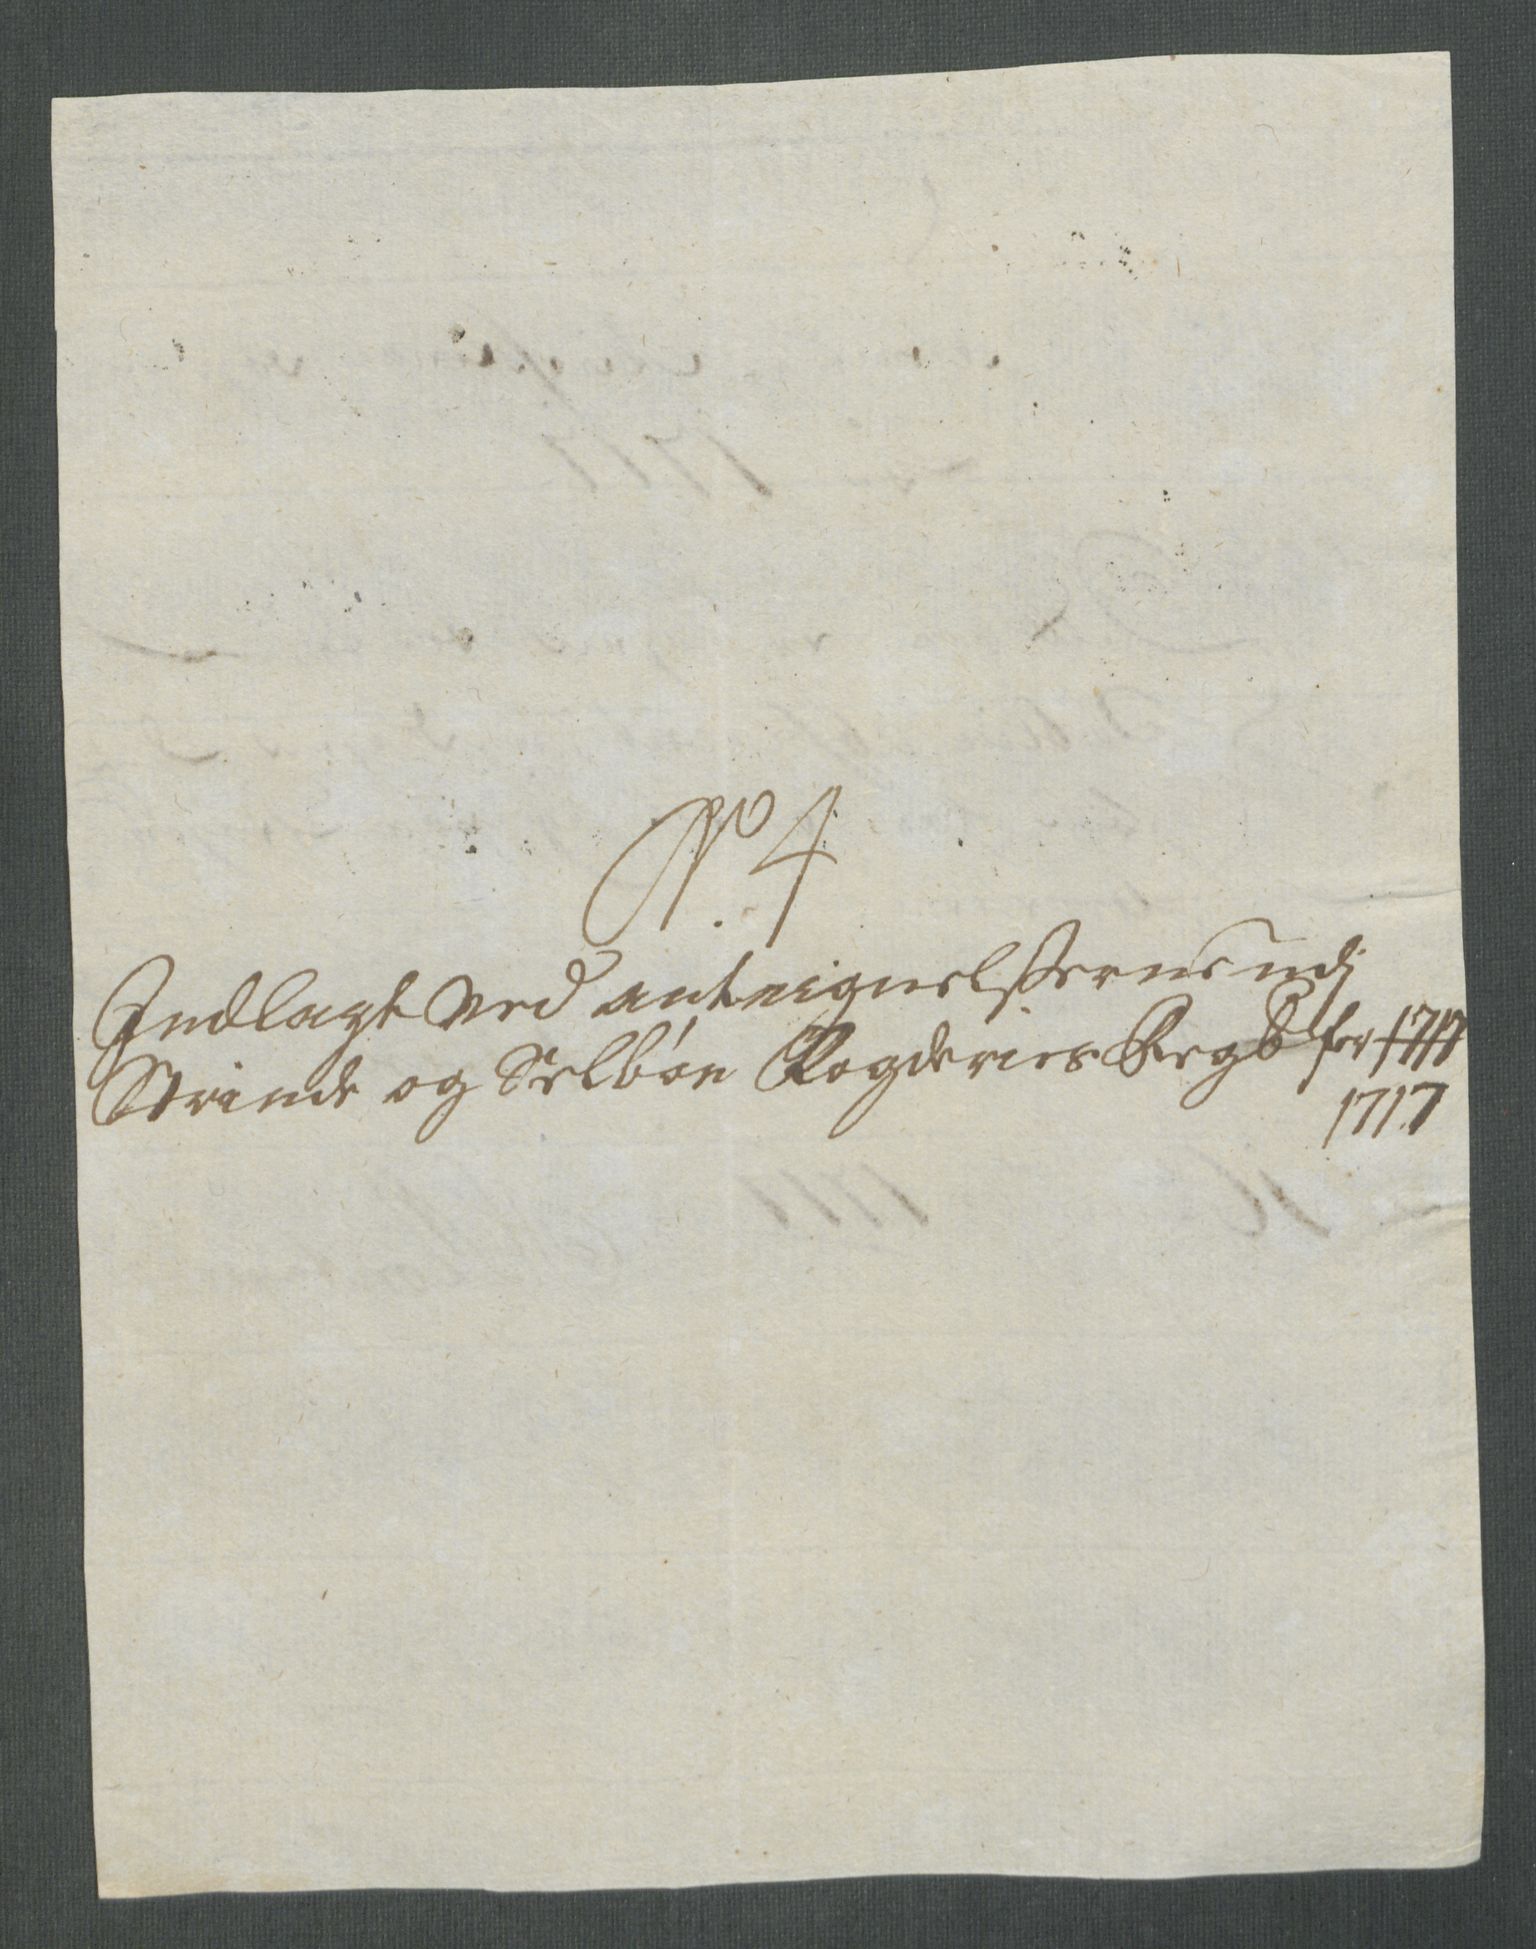 No. 4
Indlagt Ved anteignelsserne udj
Strinde og Selboe Fogderies Regsk for 1717
1717